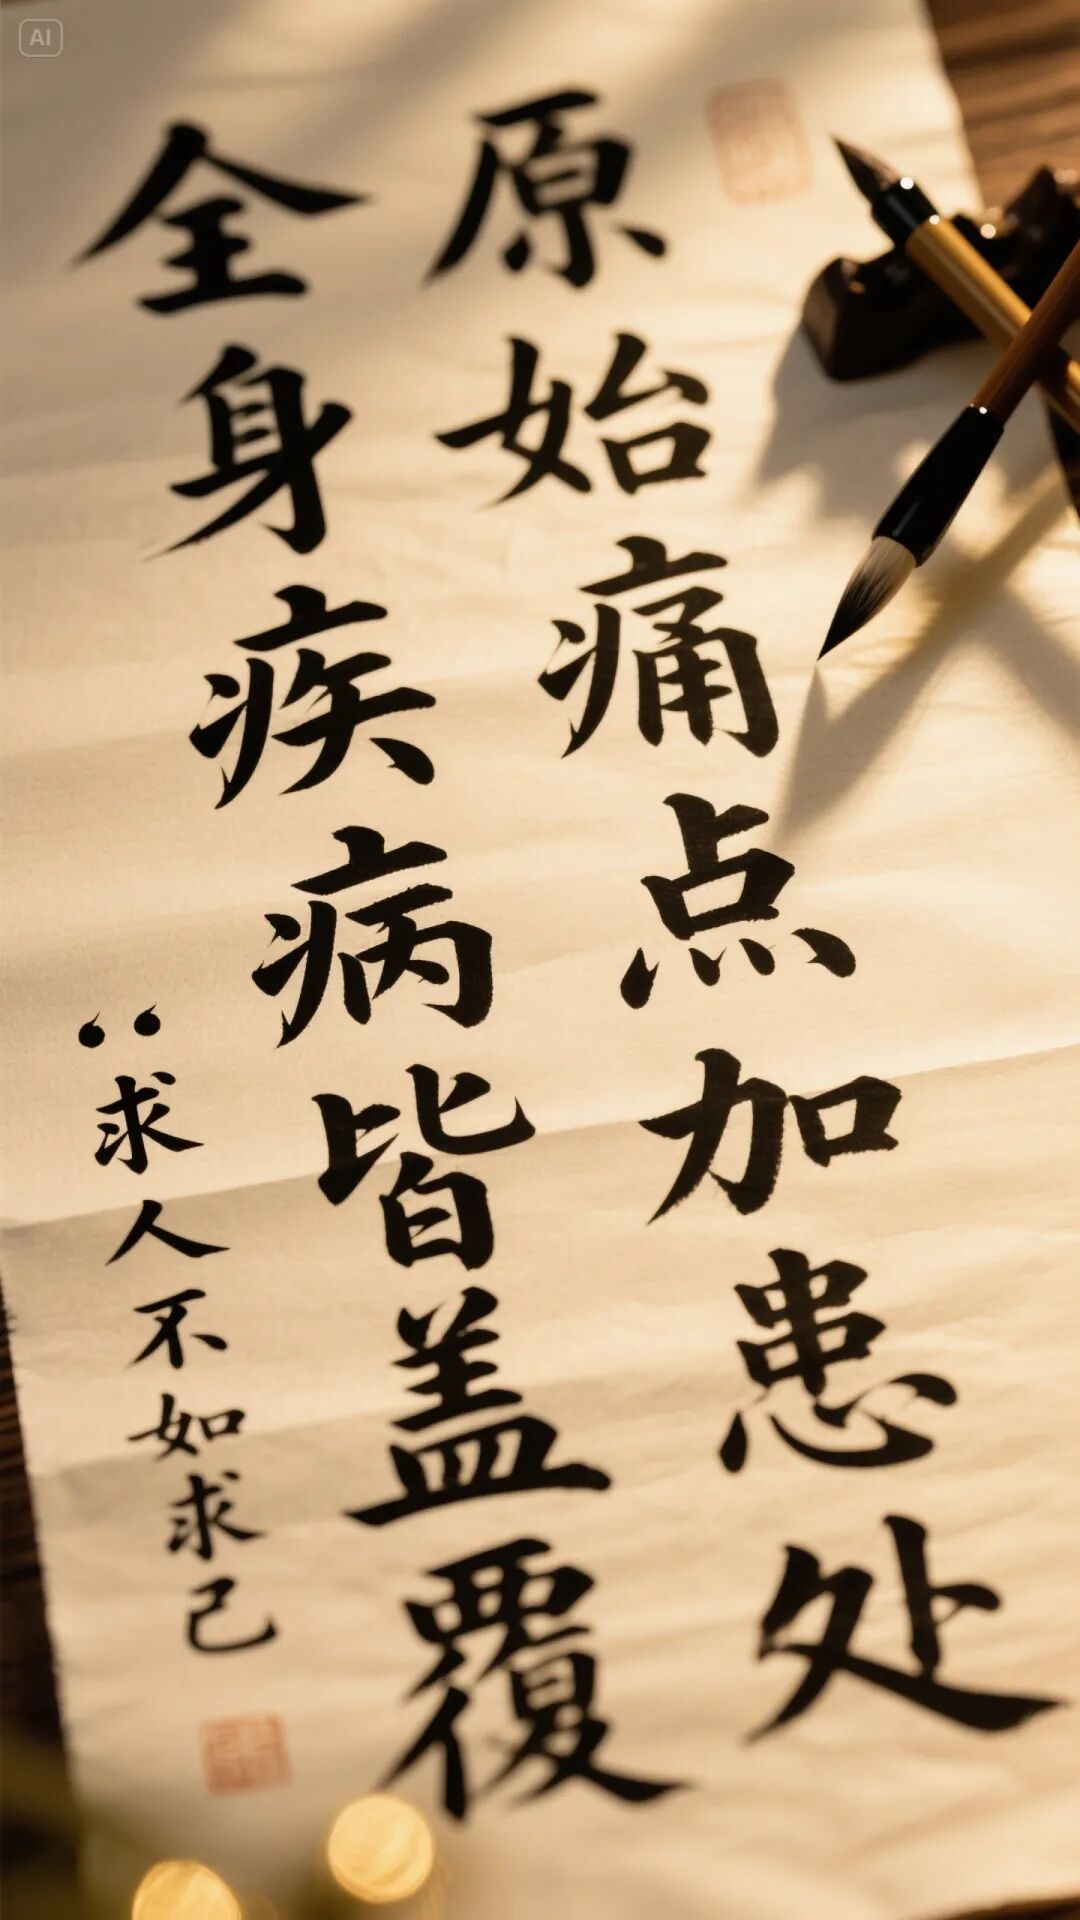 原始痛点加患处
全身疾病皆盖覆
“求人不如求己
AI